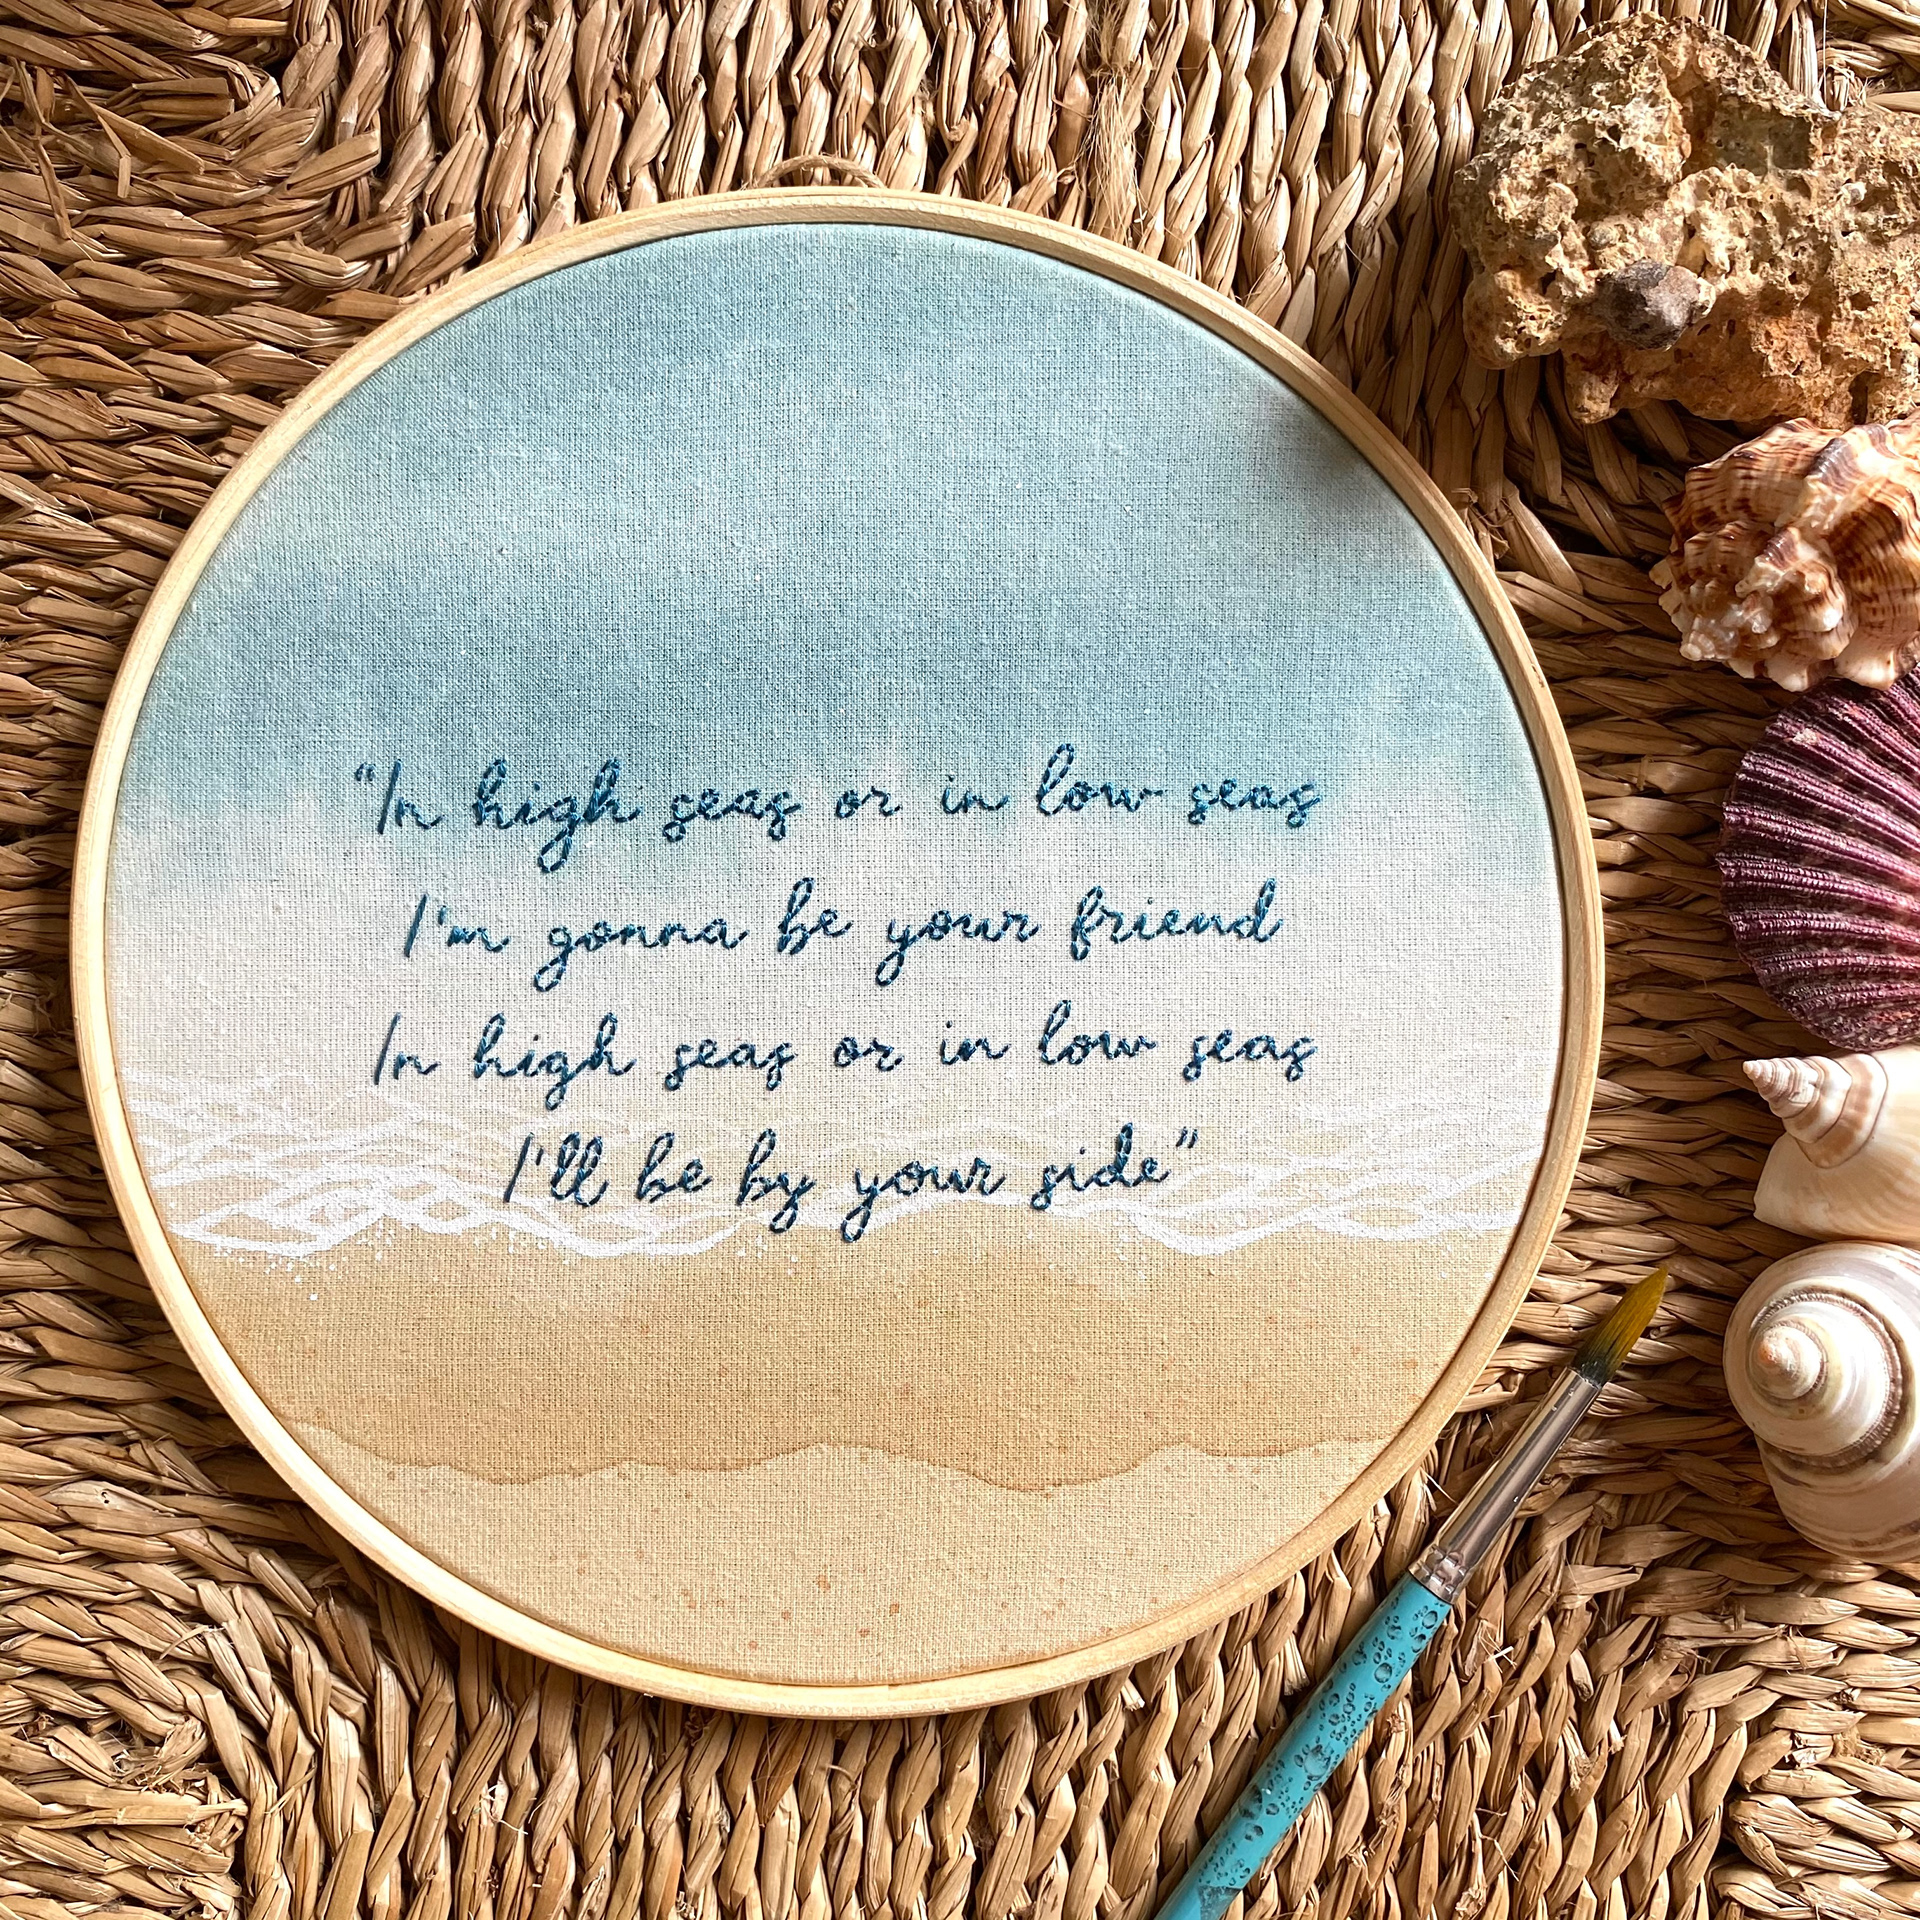 "In high seas or in low seas
I'm gonna be your friend
In high seas or in low seas
I'll be by your side"